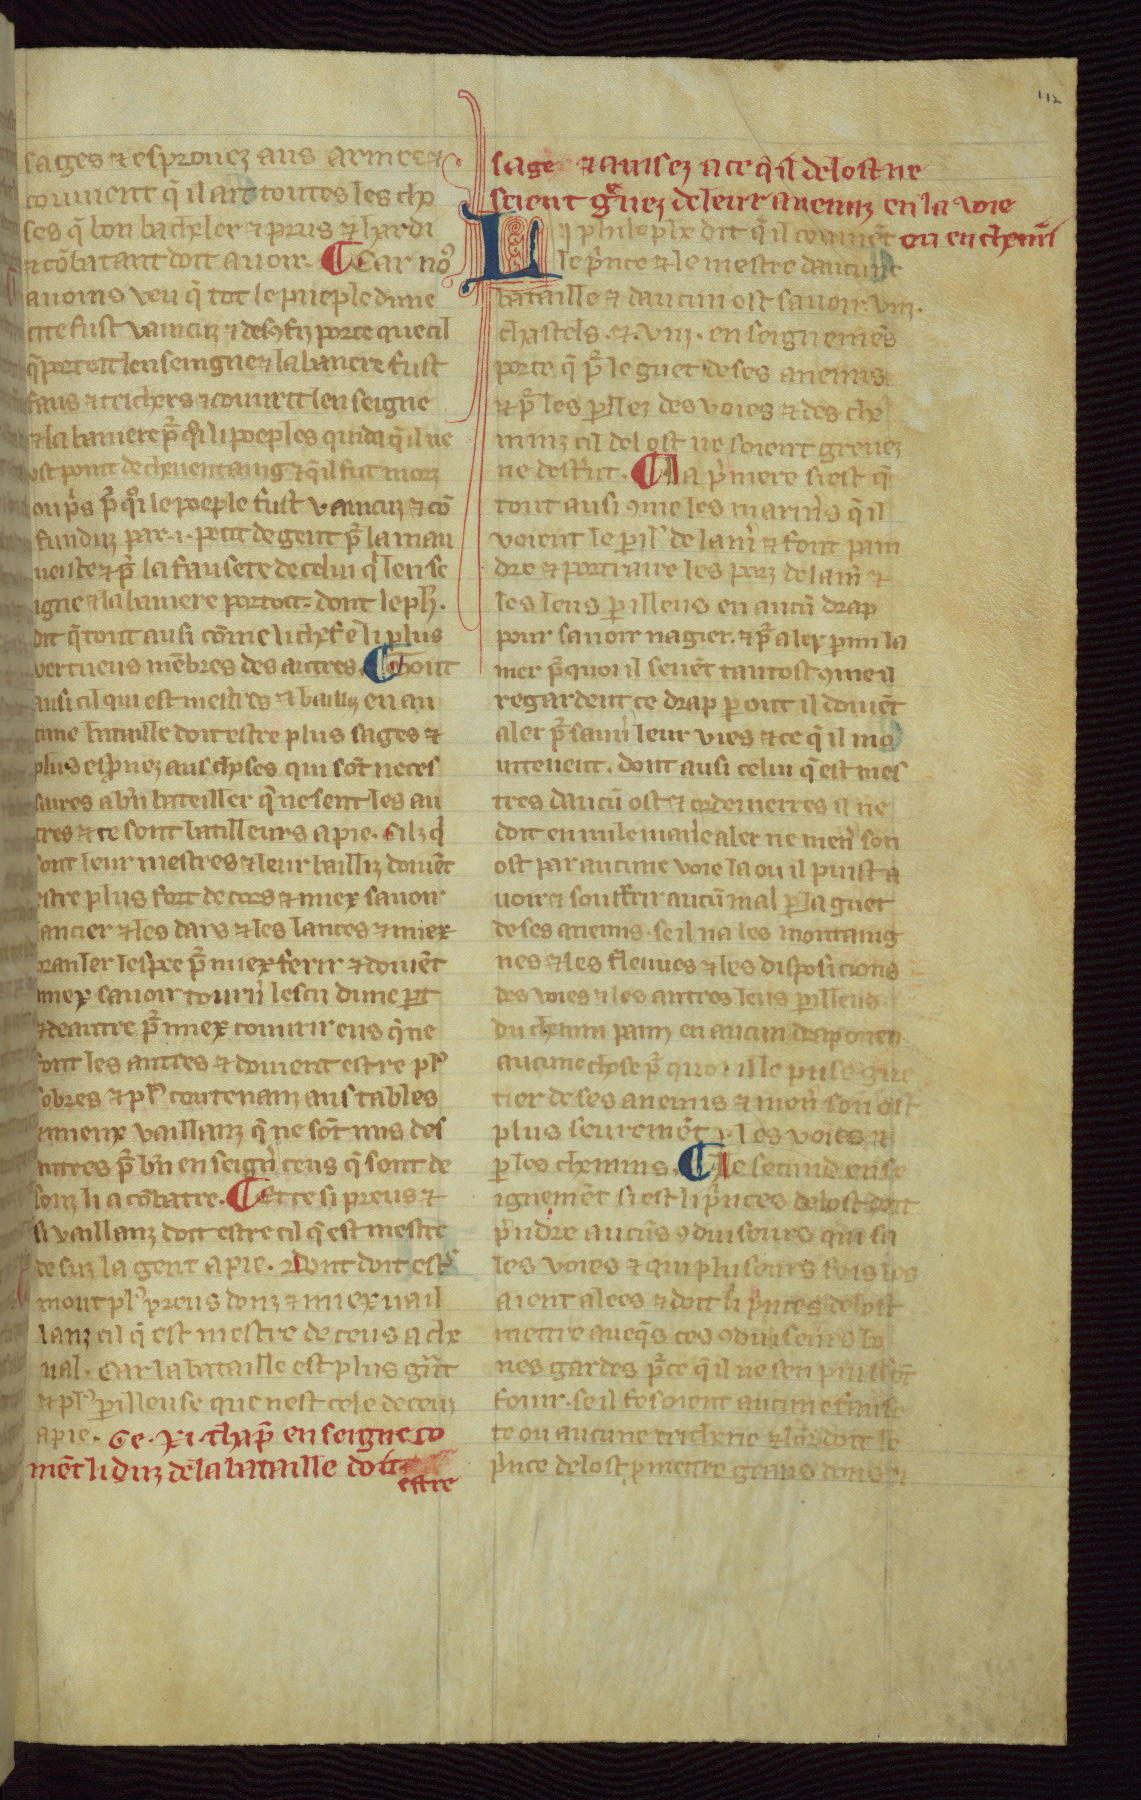 112
sages ⁊ esprouez aus armees ⁊
couuient q̄ il ait toutes les cho
ses q̄ bon bacheler ⁊ prus ⁊ hardi
⁊ cōbatant doit auoir. Car noꝰ
auoms veu q̄ tot le pueple dune
cite fust vaincuz ⁊ desꝯfiz porce que cil
q̄ portoit lenseingne ⁊ la baniere fust
faus ⁊ trichers ⁊ couurit lenseigne
⁊ la baniere
ost point de cheuentaing ⁊ q̄ il fut morz
ou p̄s le poeple fust vaincuz ⁊ cō
funduz par .i. petit de gent p̄ la mau
ueste ⁊ p̄ la fausete de celui q̄ lense
igne ⁊ la baniere portoit. dont le ph̄.
dit q̄ tout ausi cōme li chef ē li plus
vertueus mēbres des autres. Tout
ausi cil qui est mestres ⁊ bailliz en au
cune bataille doit estre plus sages ⁊
plus esp̄uez aus choses qui sōt neces
saires a bn̄ bateiller q̄ ne sent les au
tres ⁊ ce sont batilleurs a pie. Cilz q̄
sont leur mestres ⁊ leur bailliz doiuēt
estre plus fort de cors ⁊ miex sauoir
lancier ⁊ les dars ⁊ les lances ⁊ miex
branler lespee p̄ miex ferir ⁊ doiuēt
miex sauoir tourn̄ lescu dune part
⁊ deautre p̄ miex couurir eus q̄ ne
font les autres ⁊ doiuent estre plꝰ
sobres ⁊ plꝰ contenanz aus tables
⁊ mieux vaillanz q̄ ne sōt nus des
autres p̄ bn̄ enseign̄ ceus q̄ sont de
souz li a cōbatre. Et se si preus ⁊
si vaillanz doit estre cil q̄ est mestre
de suz la gent a pie. Dont doit estr̄
mout plꝰ preus donz ⁊ miex uail
lanz cil q̄ est mestre de ceus a che
ual. Car la bataille est plus gn̄t
⁊ plꝰ perilleuse que nest cele de ceuz
a pie. Ce .xi. chap̄ enseigne co
mēt li duz de la bataille doit
estre
sage ⁊ auisez a ce q̄ il de lost ne
soient gͣuez de leur anemiz en la voie
ou en chemī
Li philosophe dit q̄ il couuiēt
le pr̄nce ⁊ le mestre daucune
bataille ⁊ daucun ost sauoir .viii.
chastels .⁊ .viii. enseignemēs
porce q̄ p̄ le guet de ses anemis
⁊ p̄ les pillez des voies ⁊ des che
minz cil de lost ne soient greuez
ne destruit. La p̄miere si est q̄
tout ausi ꝯme les marin̄s q̄ il
voient le peril de la mr̄ ⁊ font pain
dre ⁊ portraire les porz de la mr̄ ⁊
les leus perilleus en aucū drap
pour sauoir nagier. ⁊ p̄ aler parmi la
mer p̄ quoi il seuēt tantost ꝯme il
regardent ce drap p ont il doiuēt
aler p̄ sauu̇ leur vies ⁊ ce q̄ il mo
uteuent. dont ausi celui q̄ est mes
tres daucū ost ⁊ ordenierres il ne
doit en nule manie aler ne men̄ son
ost par aucune voie la ou il puist a
uoir ⁊ souffrir aucū mal p la guet
de ses anemis. se il na les montaing
nes ⁊ les fleuues ⁊ les disposicions
des voies ⁊ les autres leus perilleus
du chemin painz en aucun drap ou en
aucune chose p̄ quoi il le puise gue
tier de ses anemis ⁊ men̄ son ost
plus seuremēt p les voies ⁊
p les chemins. Le secund ense
ignemēt si est li p̄nces de lost doit
p̄ndre aucūs ꝯduiseurs qui sa
les voies ⁊ qui pluseurs fois les
aient alees ⁊ doit li p̄nces de lost
mettre aueq̄s ces ꝯduiseurs bo
nes gardes p̄ ce q̄ il ne sen puissēt
fouir. se il fesoient aucune fause
te ou aucune tricherie ⁊ lor doit le
p̄nce de lost pmettre grans dons